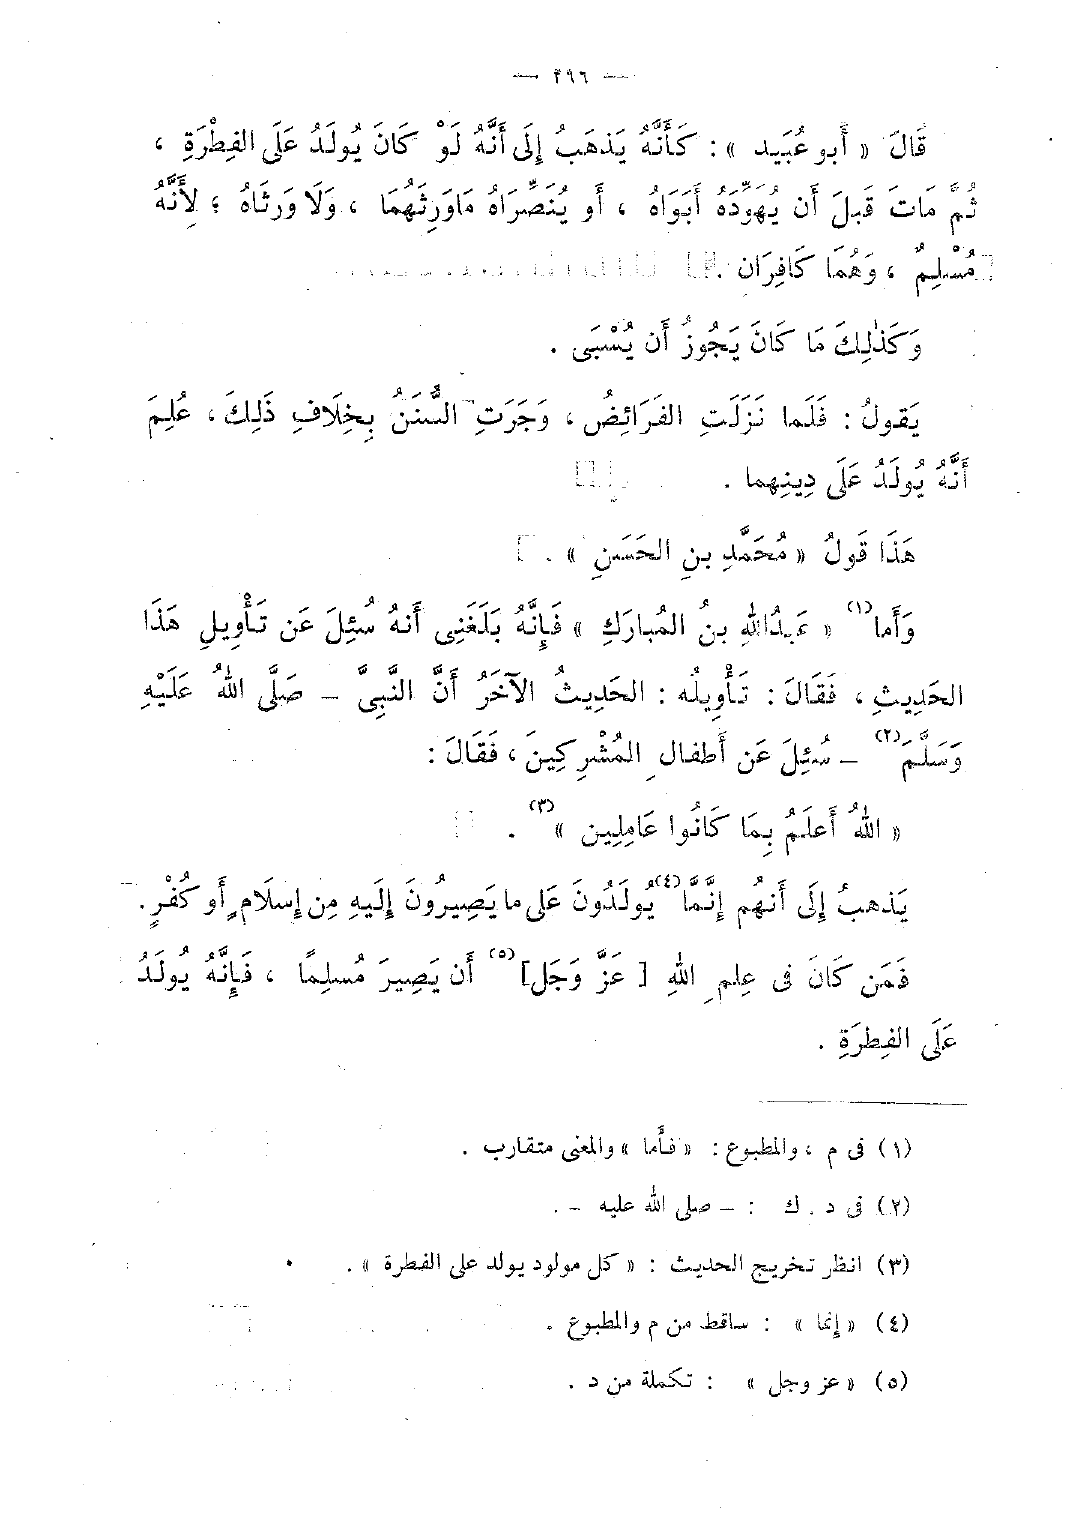 — ٢٩٦ —
قَالَ « أَبو عُبَيد » : كَأَنَّهُ يَذهَبُ إِلَى أَنَّهُ لَوْ كَانَ يُولَدُ عَلَى الفِطْرَةِ ،
ثُمَّ مَاتَ قَبلَ أَن يُهَوِّدَهُ أَبَوَاهُ ، أَو يُنَصِّرَاهُ مَاوَرِثَهُمَا ، وَلَا وَرِثَاهُ ؛ لِأَنَّهُ
مُسْلِمٌ ، وَهُمَا كَافِرَان .
وَكَذٰلِكَ مَا كَانَ يَجُوزُ أَن يُسْبَى .
يَقولُ : فَلَما نَزَلَتِ الفَرَائِضُ ، وَجَرَتِ السُّنَنُ بِخِلَافِ ذَلِكَ ، عُلِمَ
أَنَّهُ يُولَدُ عَلَى دِينِهِما .
هَذَا قَولُ « مُحَمَّدِ بنِ الحَسَنِ » .
وَأَما(١) « عَبدُاللهِ بنُ المُبارَكِ » فَإِنَّهُ بَلَغَنِى أَنهُ سُئِلَ عَن تَأْوِيلِ هَذَا
الحَدِيثِ ، فَقَالَ : تَأْوِيلُه : الحَدِيثُ الآخَرُ أَنَّ النَّبِىَّ – صَلَّى اللهُ عَلَيْهِ
وَسَلَّمَ(٢) – سُئِلَ عَن أَطفالِ المُشْرِكِينَ ، فَقَالَ :
« اللهُ أَعلَمُ بِمَا كَانُوا عَامِلِين »(٣) .
يَذهبُ إِلَى أَنهُم إِنَّمَّا(٤) يُولَدُونَ عَلى ما يَصِيرُونَ إِلَيهِ مِن إِسلَامٍ أَو كُفْرٍ .
فَمَن كَانَ فى عِلمِ اللهِ [ عَزَّ وَجَل](٥) أَن يَصِيرَ مُسلِمًا ، فَإِنَّهُ يُولَدُ
عَلَى الفِطرَةِ .
(١) فى م ، والمطبوع : « فأما » والمعنى متقارب .
(٢) فى د . ك : – صلى الله عليه – .
(٣) انظر تخريج الحديث : « كل مولود يولد على الفطرة » .
(٤) « إنما » : ساقط من م والمطبوع .
(٥) « عز وجل » : تكملة من د .